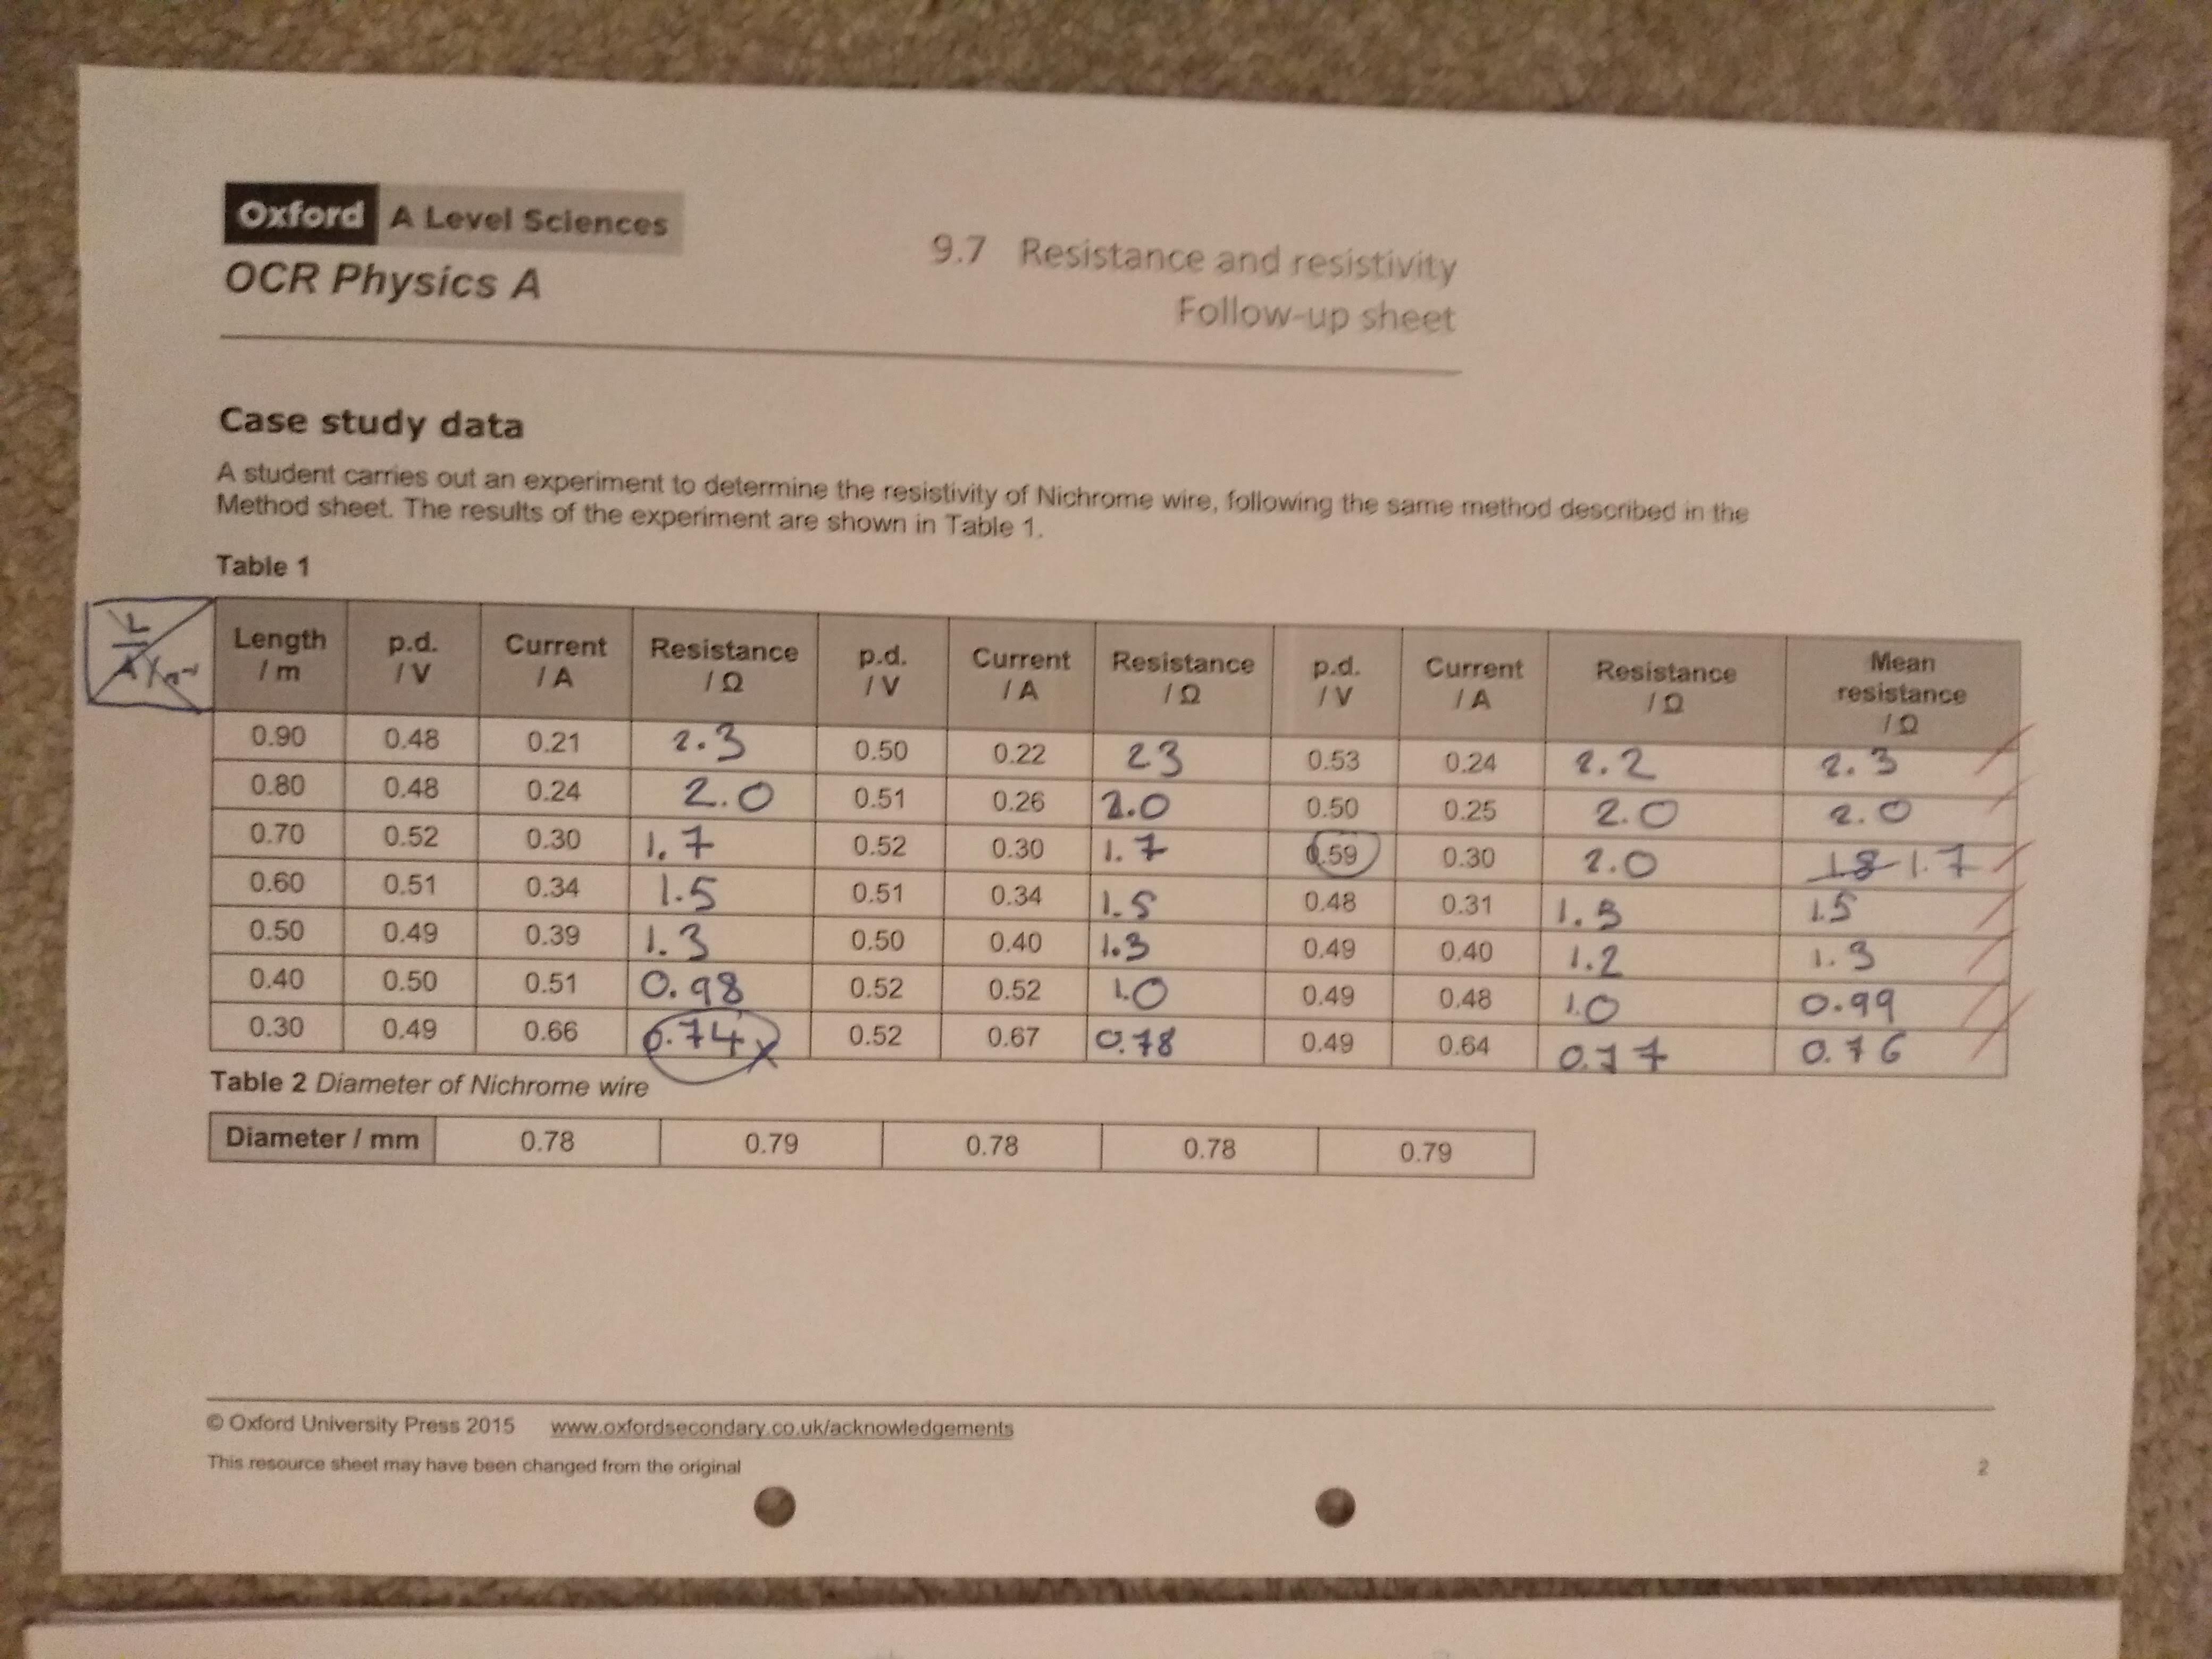 Oxford A Level Sciences
OCR Physics A
9.7 Resistance and resistivity
Follow-up sheet
Case study data
A student carries out an experiment to determine the resistivity of Nichrome wire, following the same method described in the
Method sheet. The results of the experiment are shown in Table 1.
Table 1
L
A
Length / m p.d. / V Current / A Resistance / Ω p.d. / V Current / A Resistance / Ω p.d. / V Current / A Resistance / Ω Mean resistance / Ω
0.90 0.48 0.21 2.3 0.50 0.22 2.3 0.53 0.24 2.2 2.3
0.80 0.48 0.24 2.0 0.51 0.26 2.0 0.50 0.25 2.0 2.0
0.70 0.52 0.30 1.7 0.52 0.30 1.7 0.59 0.30 2.0 1.8 1.7
0.60 0.51 0.34 1.5 0.51 0.34 1.5 0.48 0.31 1.5 1.5
0.50 0.49 0.39 1.3 0.50 0.40 1.3 0.49 0.40 1.2 1.3
0.40 0.50 0.51 0.98 0.52 0.52 1.0 0.49 0.48 1.0 0.99
0.30 0.49 0.66 0.74 x 0.52 0.67 0.78 0.49 0.64 0.77 0.76
Table 2 Diameter of Nichrome wire
Diameter / mm 0.78 0.79 0.78 0.78 0.79
© Oxford University Press 2015 www.oxfordsecondary.co.uk/acknowledgements
This resource sheet may have been changed from the original
2